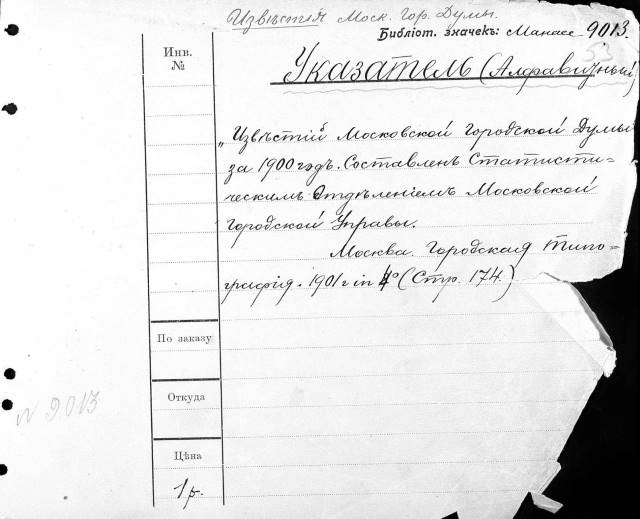 Извѣстія Моск. Гор. Думы.
Библіот. значекъ: Манасе 9013.
53
Инв.
№
Указатель (Алфавитный)
„Извѣстій Московской Городской Думы
за 1900 годъ. Составленъ Статисти=
ческимъ Отдѣленіемъ Московской
Городской Управы.
Москва. Городская Типо=
графія. 1901 г in 4° (Стр. 174.)
По заказу
Откуда
N 9013
Цѣна
1 р.